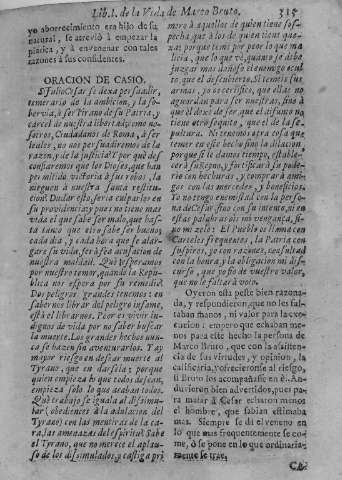 Lib. I. de la Vida de Marco Bruto. 315
yo aborrecimiento era hijo de su
natural, se atrevió a empezar la
platica, y à envenenar con tales
razones à sus confidentes.
ORACION DE CASIO.
Si Julio Cesar se dexa persuadir,
temerario de la ambicion, y la so-
bervia, à ser Tirano de su Patria, y
carcel de nuestra libertad; como no-
sotros, Ciudadanos de Roma, à ser
leales, no nos persuadiremos de la
razon, y de la justicia? Y por què des-
confiaremos que los Dioses, que han
permitido vitoria à sus robos, la
nieguen à nuestra santa restitu-
cion? Dudar esto, seria culpar lo en
su providencia; y para no tiene mas
vida el que sabe ser malo, que has-
ta tanto que otro sabe ser bueno;
cada dia, y cada hora que se alar-
gare su vida, serà fea acusacion de
nuestra maldad. Què esperamos
por nuestro temor, quando la Repu-
blica nos espera por su remedio?
Dos peligros grandes tenemos: en
sabernos librar del peligro infame,
està el librarnos. Peor es vivir in-
dignos de vida por no saber buscar
la muerte. Los grandes hechos nun-
ca se hazen sin aventurarlos. Y ay
mayor riesgo en desear muerte al
Tyrano, que en darsela; porque
quien empieza lo que todos desean,
empieza solo lo que acaban todos.
Què trabajo se iguala al dissimu-
lar (obedientes à la adulacion del
Tyrano) con las mentiras de la ca-
ra, las amenazas del espiritu? Sabe
el Tyrano, que no merece el aplau-
so de los dissimulados, y castiga pri-
mero à aquellos de quien tiene sos-
pecha, que à los de quien tiene que-
xa: porque tienen por peor lo que ma-
licia, que lo que vè, quanto se deba
juzgar mas dañoso el enemigo ocul-
to, que el descubierto. Si temeis sus
armas, creed, que ellas no
aguardan para ser nuestras, sino à
que èl dexe de ser, que el difunto no
tiene otro sequito, que el de la se-
pultura. Ni tenemos otra cosa que
temer en este hecho sino la dilacion,
porque si le damos tiempo, estable-
cerà su Reyno, y fortificarà su pode-
rio con hechuras, y comprarà ami-
gos con las mercedes, y beneficios.
Yo no tengo enemistad con la per-
sona de Cesar, sino con su intento, ni en
estas palabras oìs mi vengança, si-
no mi zelo: El Pueblo os llama con
Carteles frequentes, la Patria con
suspiros, yo con razones; consultad
con la honra, y la obligacion mi dis-
curso, que yo fio de vuestro valor,
que no le faltarà voto.
Oyeron esta peste bien razona-
da, y respondieron, que no les fal-
taban manos, ni valor para la exe-
cucion: empero que echaban me-
nos para este hecho la persona de
Marco Bruto, que con la asisten-
cia de sus virtudes, y opinion, la
calificaria, y ofrecieronse al riesgo,
si Bruto los acompañasse en èl. An-
duvieron bien advertidos, pues pa-
ra matar à Cesar echaron menos
el hombre, que sabian estimaba
mas. Siempre se di el veneno en
lo que mas frequentemente se co-
me, ò se pone en lo que ordinaria-
mente se trae.